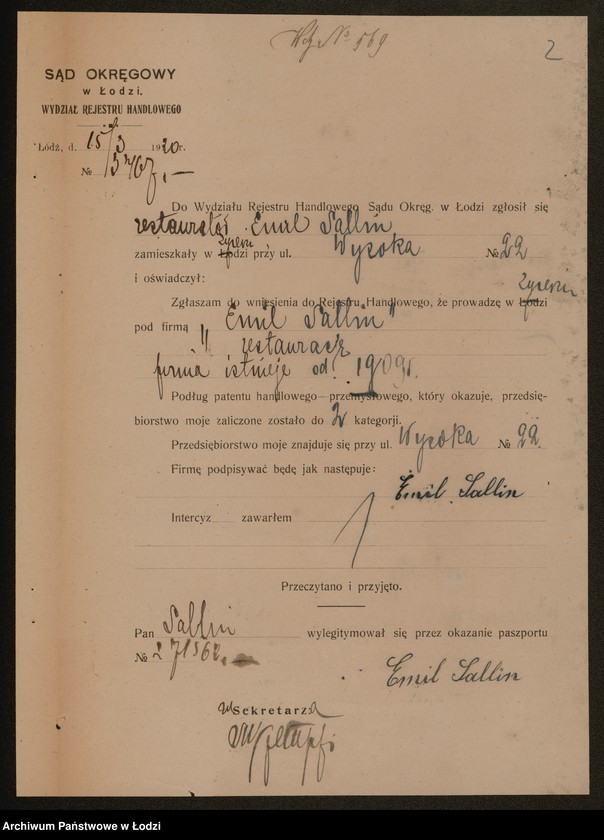 2
SĄD OKRĘGOWY
w Łodzi.
WYDZIAŁ REJESTRU HANDLOWEGO
Łódź, d. 15/3 1920 r.
№
Do Wydziału Rejestru Handlowego Sądu Okręg. w Łodzi zgłosił się
Emil Sallin
zamieszkały w Łodzi przy ul. Wysoka № 22
i oświadczył:
Zgłaszam do wniesienia do Rejestru Handlowego, że prowadzę w Łodzi
pod firmą „Emil Sallin"
firma istnieje od 1909 r.
Podług patentu handlowego—przemysłowego, który okazuje, przedsię-
biorstwo moje zaliczone zostało do kategorji.
Przedsiębiorstwo moje znajduje się przy ul. Wysoka № 22.
Firmę podpisywać będę jak następuje:
Emil Sallin
Intercyz zawarłem
Przeczytano i przyjęto.
Pan Sallin wylegitymował się przez okazanie paszportu
№
Emil Sallin
Sekretarza
Archiwum Państwowe w Łodzi